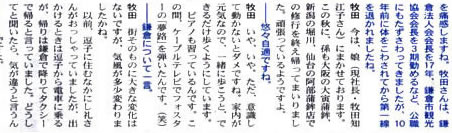 を痛感しますね。牧田さんは、鎌
倉法人会会長を17年、鎌倉市観光
協会会長を3期勤めるなど、公職
にもたずさわってきましたが、10
年前に体をこわされてから第一線
を退かれましたね。
牧田　今は、娘（現社長・牧田知
江子さん）にまかせております。
この秋に、孫も大阪の大寅蒲鉾、
新潟の堀川、仙台の阿部蒲鉾店で
の修行を終え帰ってまいりまし
た。頑張っているようですよ。
――悠々自適ですね。
牧田　いや、いや。ただ、意識し
て動かないとダメですね。家内が
元気なので、一緒に歩こうで、で
きるだけ歩くようにしています。こ
の間、ケーブルテレビでフォスタ
ーの夢路を弾いたんです。（笑）
――鎌倉について一言。
牧田　街そのものに大きな変化は
ないですが、気風が多少変わりま
したかね。
以前、逗子に住むなかにし礼さ
んがおっしゃっていましたが、出
かけるときは逗子から電車に乗る
が、帰りは鎌倉で降りてタクシー
で帰ると言っていました。どうし
てと聞いたら、気が違うと言うん